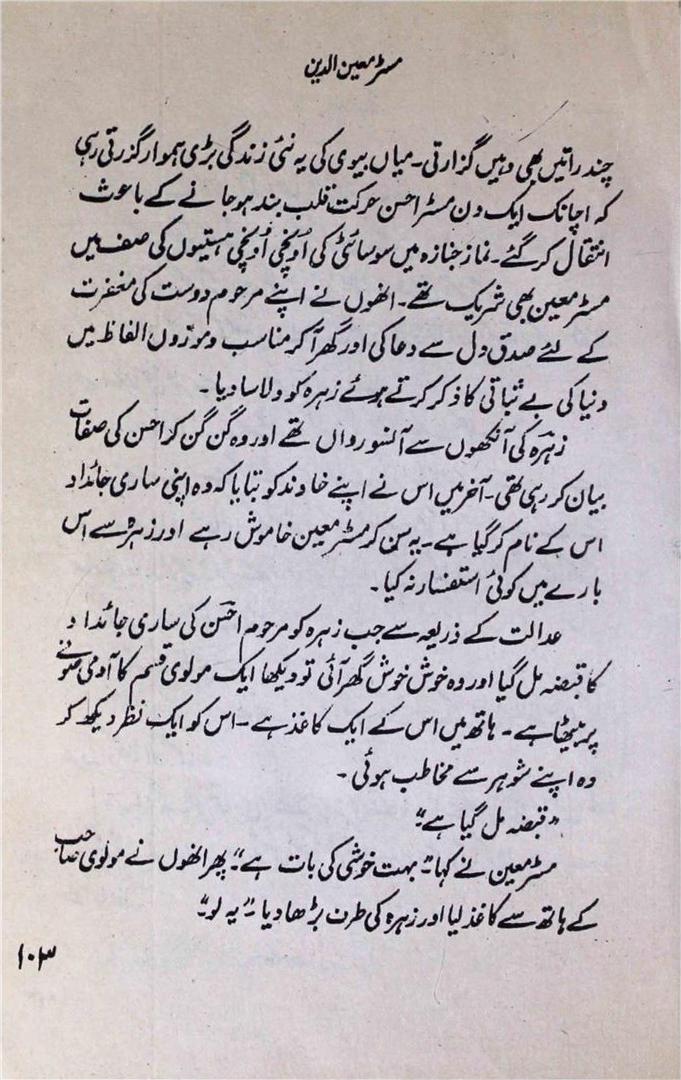 مسٹر معین الدین
چند راتیں بھی وہیں گزارتی۔ میاں بیوی کی یہ نئی زندگی بڑی ہموار گزرتی رہی
کہ اچانک ایک دن مسٹر احسن حرکت قلب بند ہو جانے کے باعوث
انتقال کر گئے۔ نماز جنازہ میں سوسائٹی کی اونچی اونچی ہستیوں کی صف میں
مسٹر معین بھی شریک تھے۔ انھوں نے اپنے مرحوم دوست کی مغفرت
کے لئے صدق دل سے دعا کی اور گھر آ کر مناسب و موزوں الفاظ میں
دنیا کی بے ثباتی کا ذکر کرتے ہوئے زہرہ کو دلاسا دیا۔
زہرہ کی آنکھوں سے آنسو رواں تھے اور وہ گن گن کر احسن کی صفات
بیان کر رہی تھی۔ آخر میں اس نے اپنے خاوند کو بتایا کہ وہ اپنی ساری جائداد
اس کے نام کر گیا ہے۔ یہ سن کر مسٹر معین خاموش رہے اور زہرہ سے اس
بارے میں کوئی استفسار نہ کیا۔
عدالت کے ذریعہ سے جب زہرہ کو مرحوم احسن کی ساری جائداد
کا قبضہ مل گیا اور وہ خوش خوش گھر آئی تو دیکھا ایک مولوی قسم کا آدمی صوفے
پر بیٹھا ہے۔ ہاتھ میں اس کے ایک کاغذ ہے۔ اس کو ایک نظر دیکھ کر
وہ اپنے شوہر سے مخاطب ہوئی۔
"قبضہ مل گیا ہے"
مسٹر معین نے کہا۔ "بہت خوشی کی بات ہے" پھر انھوں نے مولوی صاحب
کے ہاتھ سے کاغذ لیا اور زہرہ کی طرف بڑھا دیا۔ "یہ لو"
۱۰۳